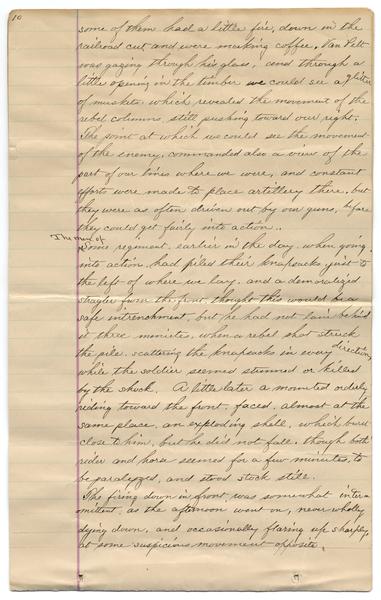 10
some of them had a little fire, down in the
railroad cut and were making coffee. Van Pelt
was gazing through his glass, and through a
little opening in the timber we could see a glitter
of muskets, which revealed the movement of the
rebel columns, still pushing toward our right.
The point at which we could see the movement
of the enemy, commanded also a view of the
part of our lines where we were, and constant
efforts were made to place artillery there, but
they were as often driven out by our guns, before
they could get fairly into action.
The men of
Some regiment, earlier in the day, when going
into action, had piled their knapsacks just to
the left of where we lay, and a demoralized
stragler from the front thought this would be a
safe intrenchment, but he had not lain behind
it three minutes, when a rebel shot struck
the pile, scattering the knapsacks in every direction,
while the soldier seemed stunned or killed
by the shock. A little later a mounted orderly
riding toward the front, faced, almost at the
same place, an exploding shell, which burst
close to him, but he did not fall, though both
rider and horse seemed for a few minutes, to
be paralyzed, and stood stock still.
The firing down in front, was somewhat inter-
mittent, as the afternoon went on, never wholly
dying down, and occasionally flaring up sharply,
at some suspicious movement opposite.